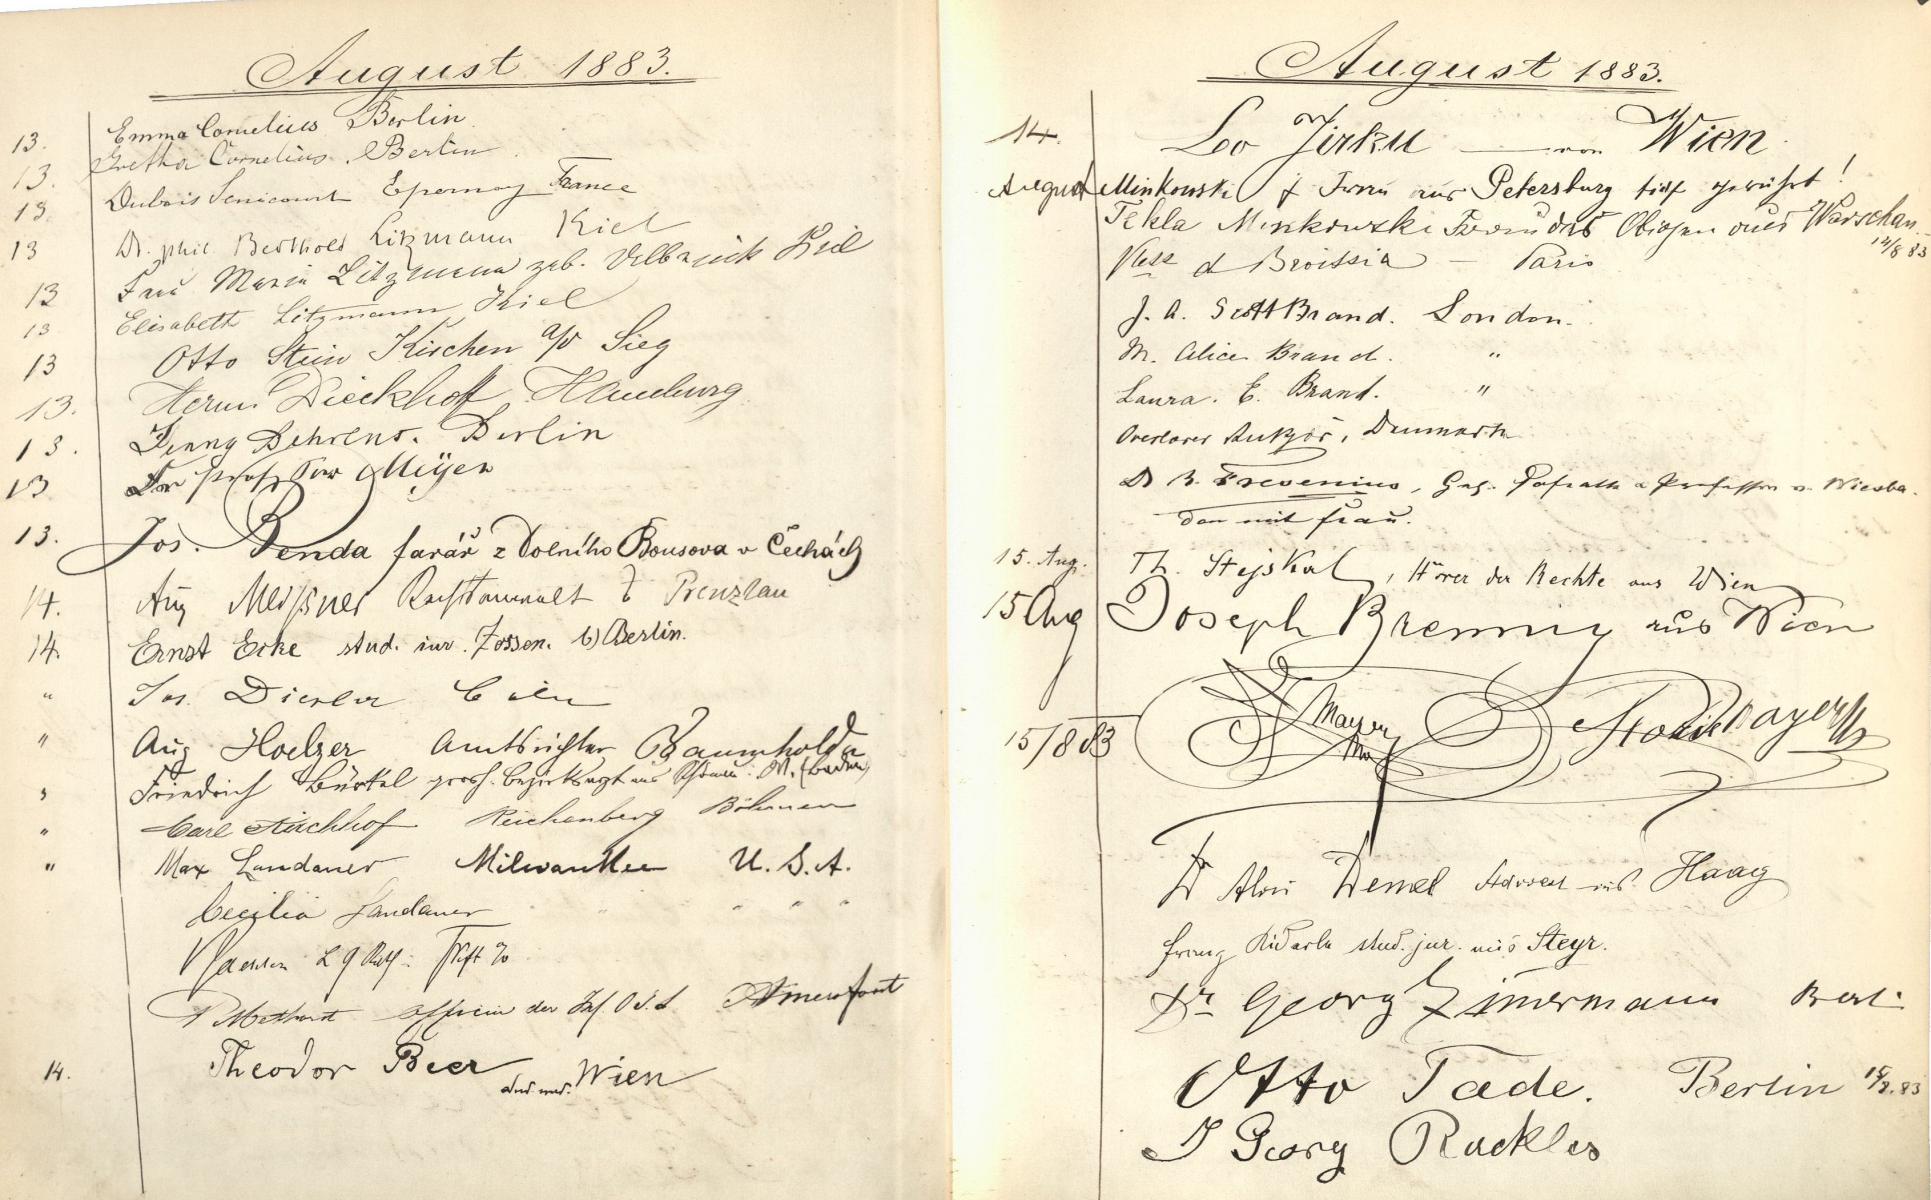 August 1883.
13. Emma Cornelius Berlin
13. Gretha Cornelius. Berlin
13. Dubois Senicourt Epernay France
13 Dr. phil. Berthold Litzmann Kiel
13 Frau Maria Litzmann geb. Kiel
13 Elisabeth Litzmann Kiel
13 Otto Stein Kirchen a/d Sieg
13. Herm. Dieckhoff Hamburg
13. Jenny Behrens. Berlin
13 Professor Meÿer
13. Jos. Benda farář z Dolního Bousova v Čechách
14. Aug Meißner Rechtsanwalt Prenzlau
14. Ernst Ecke stud. iur. Zossen. b/Berlin.
" Jos. Cöln
" Aug Hoelzer Amtsrichter Baumholder
" Friedrich Bürkel grosh. Bezirksarzt aus (Baden)
" Carl Kirchhof Reichenberg Böhmen
" Max Landauer Milwaukee U. S. A.
Cecilia Landauer " " " "
der Inf. Amersfoort
14. Theodor Beer stud. med. Wien
August 1883.
14. Leo Jirku — von Wien
August Minkowski & Frau aus Petersburg tief gerührt!
Tekla Minkowski Frau des Obigen aus Warschau
14/8 83
d Broissia – Paris
J. A. Scott Brand. London.
M. Alice Brand. "
Laura. E. Brand. "
Danmark
Dr R. Fresenius, Geh. Hofrath u Professor v. Wiesba-
den mit Frau.
15. Aug. Th. Stejskal, Hörer der Rechte aus Wien
15 Aug Joseph Brennig aus Wien
15/8 83 Mayer
Dr Alois Demel Advocat aus Haag
Franz stud. jur. aus Steyr.
Dr Georg Zimermann Berl.
Otto Tade. Berlin 15/8. 83
J Georg Ruckles